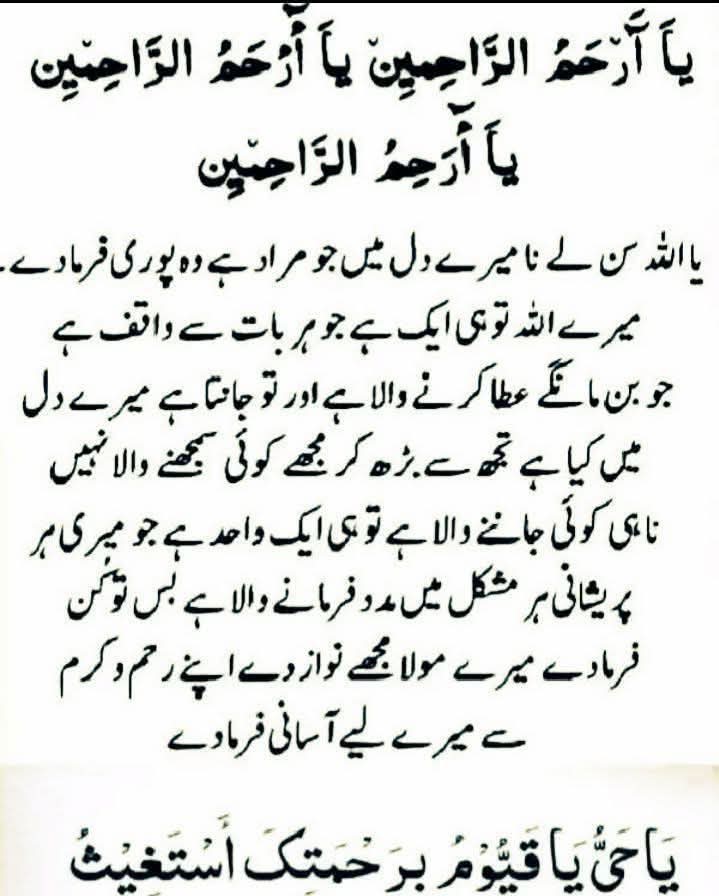 یاَ آرْحَمُ الرَّاحِمِیِنْ یاَ أَرْحَمُ الرَّاحِمِیِن
یاَ أَرَحِمُ الرَّاحِمِیِن
یااللہ سن لے نا میرے دل میں جو مراد ہے وہ پوری فرمادے۔
میرے اللہ تو ہی ایک ہے جو ہر بات سے واقف ہے
جو بن مانگے عطا کرنے والا ہے اور تو جانتا ہے میرے دل
میں کیا ہے تجھ سے بڑھ کر مجھے کوئی سمجھنے والا نہیں
نا ہی کوئی جاننے والا ہے تو ہی ایک واحد ہے جو میری ہر
پریشانی ہر مشکل میں مدد فرمانے والا ہے بس تو کُن
فرمادے میرے مولا مجھے نواز دے اپنے رحم و کرم
سے میرے لیے آسانی فرمادے
یَا حَیُّ یَا قَیُّوْمُ بِرَحْمَتِکَ أَسْتَغِیْثُ